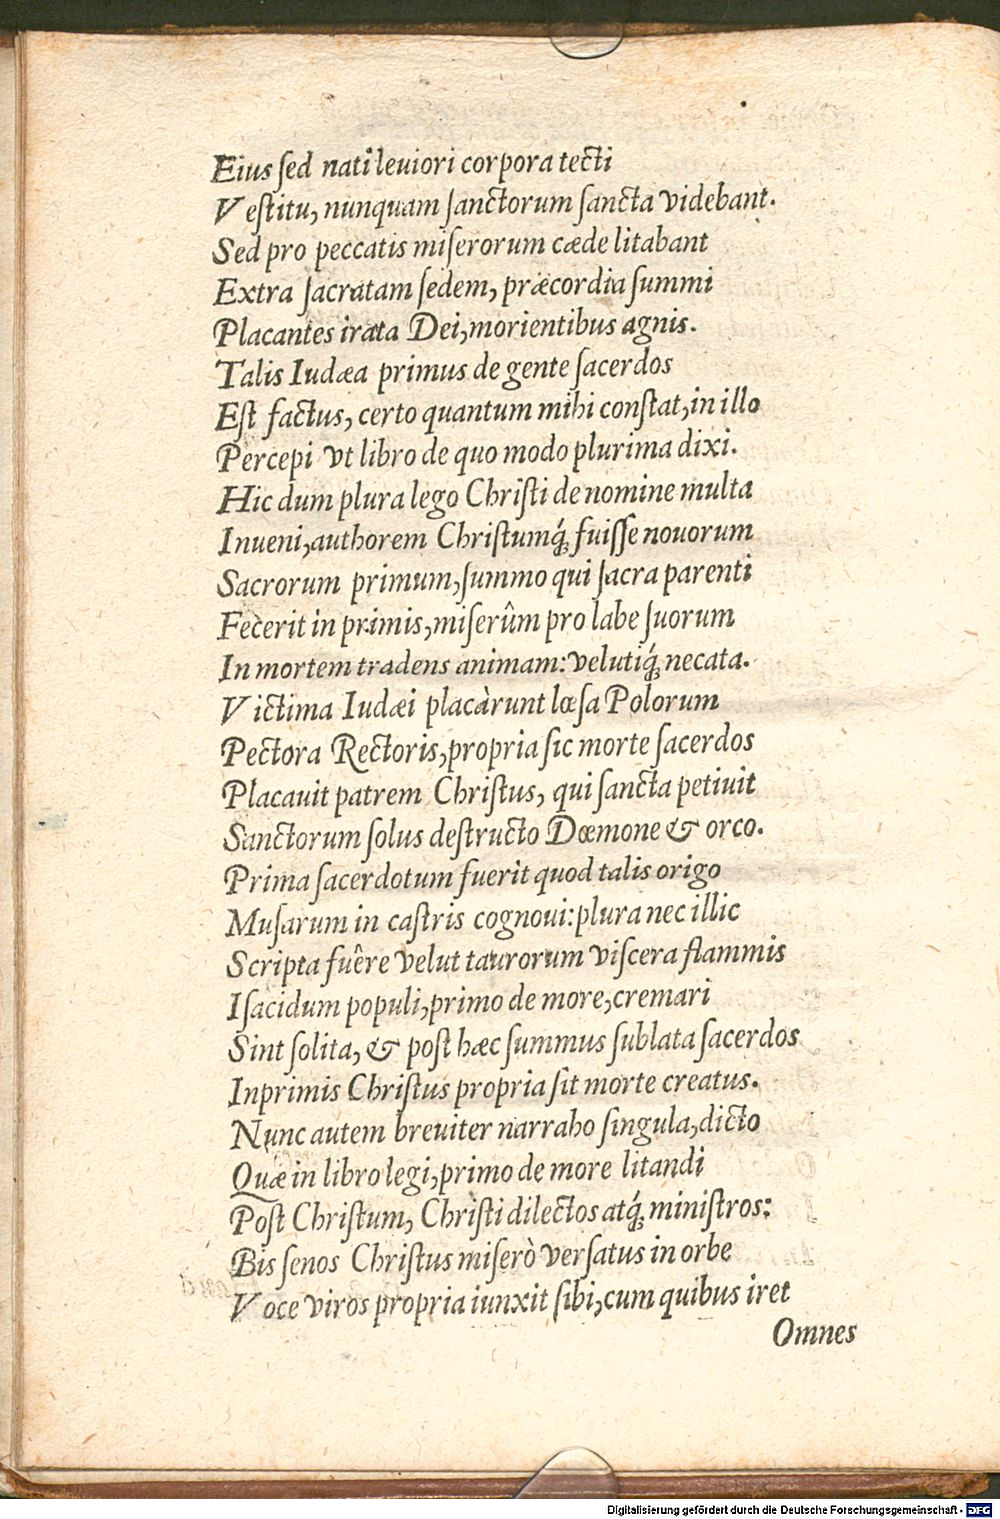 Eius ſed nati leuiori corpora tecti
Veſtitu, nunquam ſanctorum ſancta videbant.
Sed pro peccatis miſerorum cæde litabant
Extra ſacratam ſedem, præcordia ſummi
Placantes irata Dei, morientibus agnis.
Talis Iudæa primus de gente ſacerdos
Eſt factus, certo quantum mihi conſtat, in illo
Percepi vt libro de quo modo plurima dixi.
Hic dum plura lego Chriſti de nomine multa
Inueni, authorem Chriſtumq́; fuiſſe nouorum
Sacrorum primum, ſummo qui ſacra parenti
Fecerit in primis, miſerûm pro labe ſuorum
In mortem tradens animam: velutiq́; necata.
Victima Iudæi placàrunt lœſa Polorum
Pectora Rectoris, propria ſic morte ſacerdos
Placauit patrem Chriſtus, qui ſancta petiuit
Sanctorum ſolus deſtructo Dœmone & orco.
Prima ſacerdotum fuerit quod talis origo
Muſarum in caſtris cognoui: plura nec illic
Scripta fuêre velut taurorum viſcera flammis
Iſacidum populi, primo de more, cremari
Sint ſolita, & poſt hæc ſummus ſublata ſacerdos
Inprimis Chriſtus propria ſit morte creatus.
Nunc autem breuiter narrabo ſingula, dicto
Quæ in libro legi, primo de more litandi
Poſt Chriſtum, Chriſti dilectos atq́; miniſtros:
Bis ſenos Chriſtus miſerò verſatus in orbe
Voce viros propria iunxit ſibi, cum quibus iret
Omnes
Digitalisierung gefördert durch die Deutsche Forschungsgemeinschaft - DFG